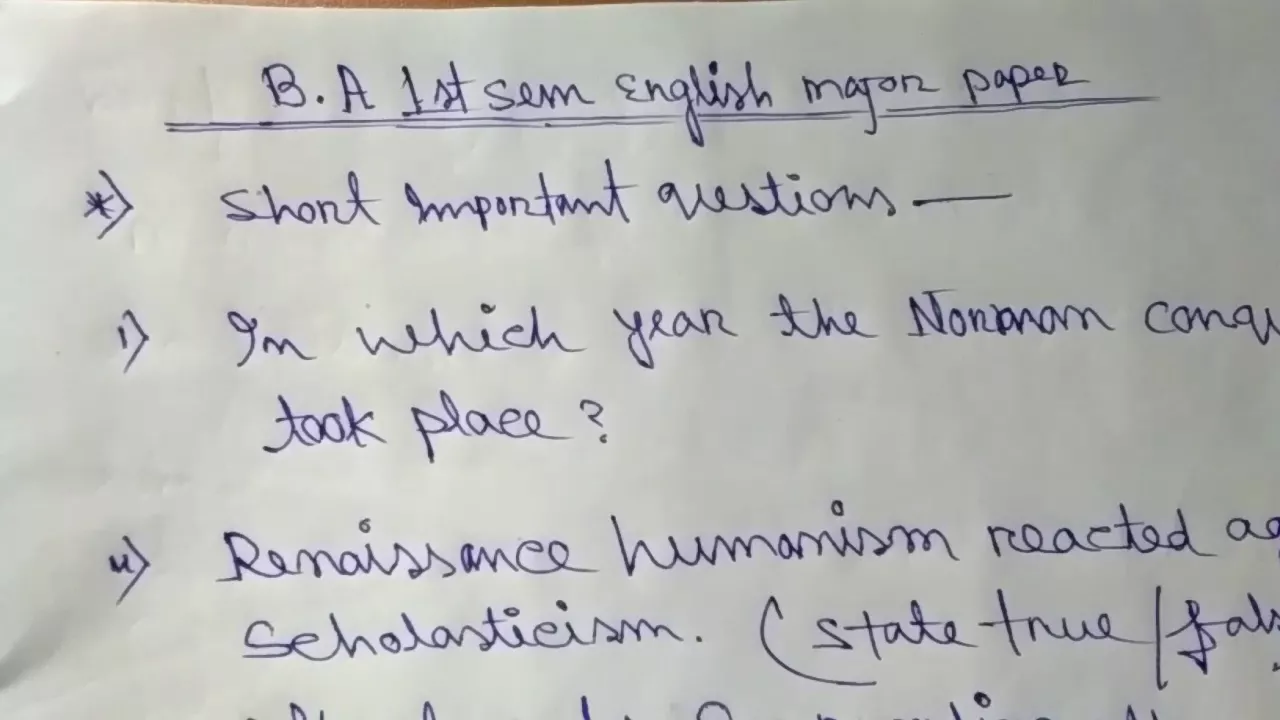 B.A 1st sem English major paper
*) Short Important questions —
i) In which year the Norman conqu
took place?
ii) Renaissance humanism reacted ag
Scholasticism. (state true/fals